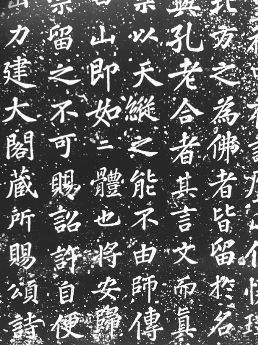 北方之為佛者皆留於名
與孔老合者其言文而真
以天縱之能不由師傳
山即如二體也將安歸
宗留之不可賜詔許自便
出力建大閣藏所賜頌詩